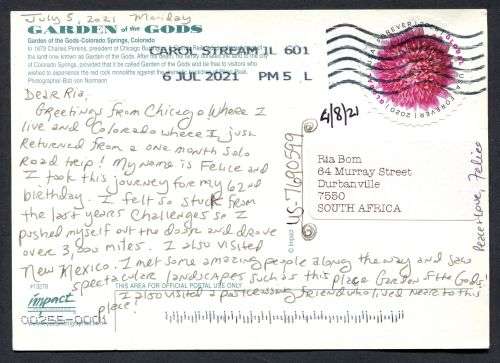 July 5, 2021 Monday
GARDEN of the GODS
Garden of the Gods-Colorado Springs, Colorado
In 1879 Charles Perkins, president of Chicago
the land now known as Garden of the Gods. After his death, his family donated the land to the city
of Colorado Springs, provided that it be called Garden of the Gods and be free to visitors who
wished to experience the red rock monoliths against the
Photographer-Bob von Normann
CAROL STREAM IL 601
6 JUL 2021 PM 5 L
FOREVER
USA/FOREVER
4/8/21
Dear Ria,
Greetings from Chicago where I
live and Colorado where I just
returned from a one month solo
road trip! My name is Felice and
I took this journey for my 62nd
birthday. I felt so stuck from
the last years challenges so I
pushed myself out the door and drove
over 3,000 miles. I also visited
New Mexico. I met some amazing people along the way and saw
spectacular landscapes such as this place Garden of the Gods!
I also visited a postcrossing friend who lived near to this
place!
US-7690599
Ria Bom
64 Murray Street
Durbanville
7550
SOUTH AFRICA
Peace & Love, Felice
© Impact
#13278
impact
THIS AREA FOR OFFICIAL POSTAL USE ONLY